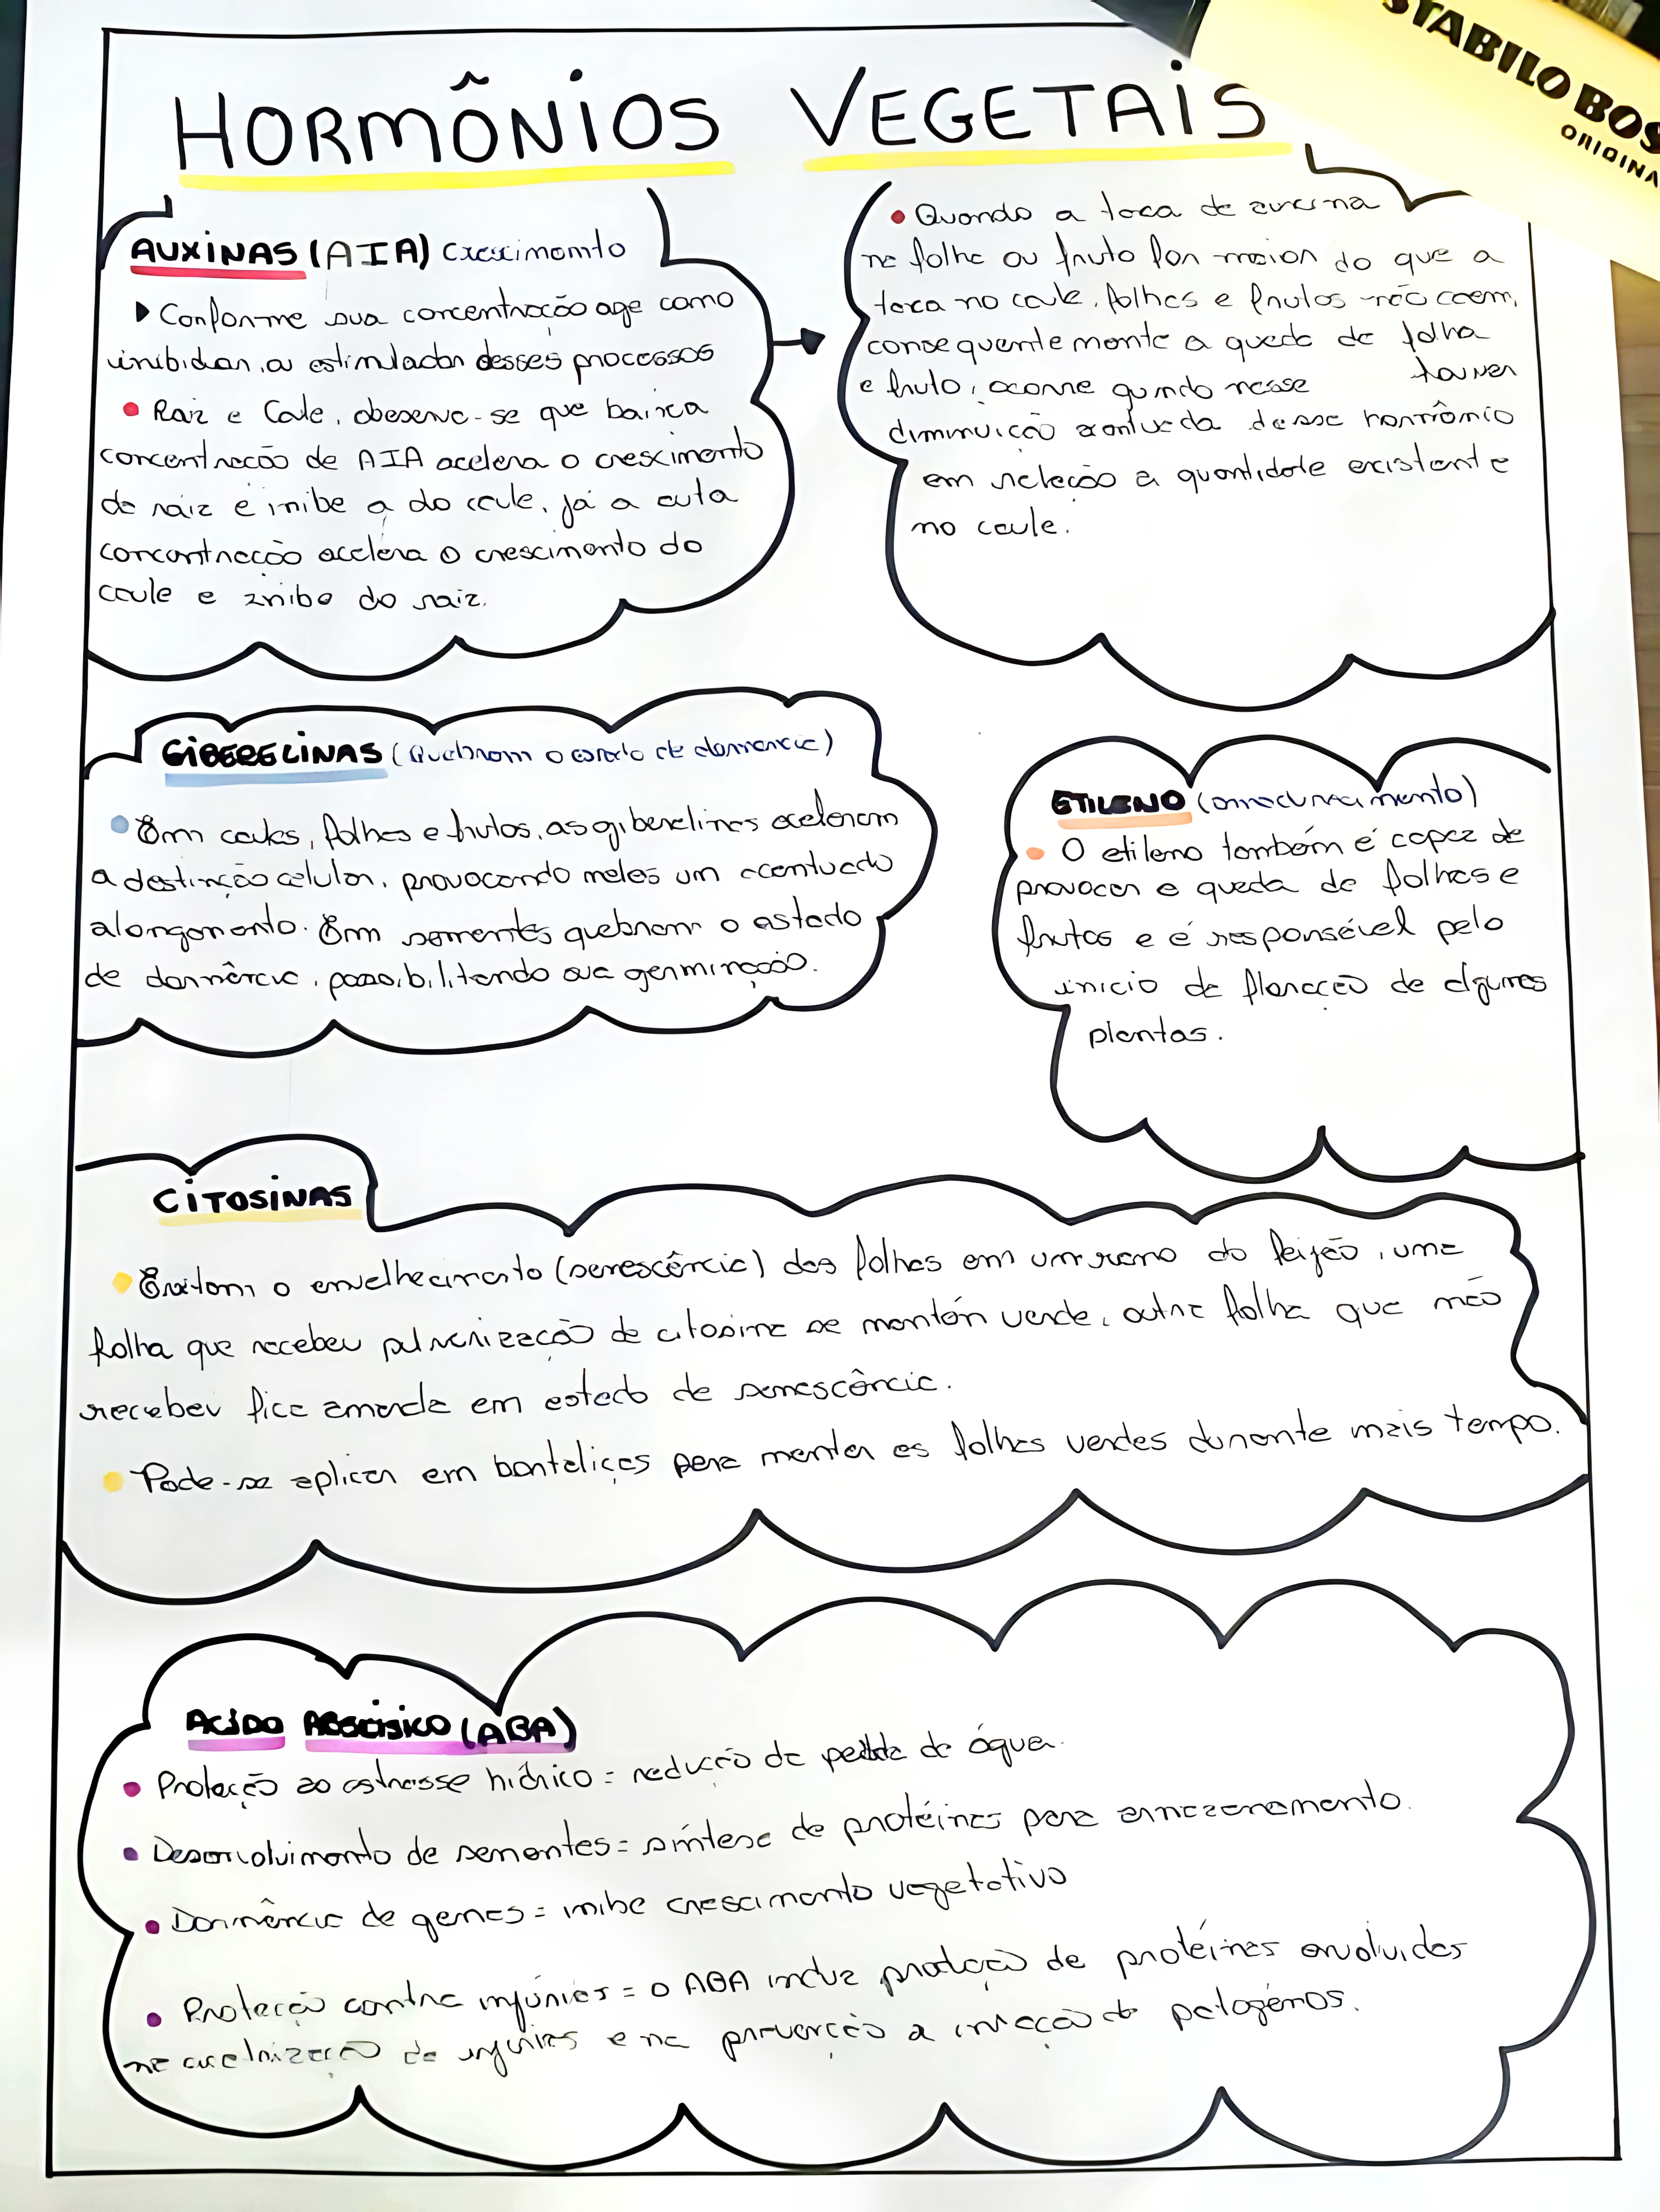 STABILO BOS
ORIGINA
HORMÔNIOS VEGETAIS
AUXINAS (AIA) Crescimento
Conforme sua concentração age como
inibidor, a estimulador desses processos
Raiz e Cale, obeserve-se que baixa
concentração de AIA acelera o crescimento
da raiz e inibe a do caule, já a auta
concentração acelera o crescimento do
caule e inibe do raiz.
Quando a taxa de auxina
na folha ou fruto for maior do que a
taxa no caule, folhas e frutos não caem,
consequentemente a queda de folha
e fruto, ocorre quando nesse houver
diminuição acentuada desse hormônio
em relação a quantidade existente
no caule.
GIBERELINAS (Quebram o estado de dormencia)
Em caules, folhas e frutos, as giberelinas aceleram
a destinção celular, provocando neles um acentuado
alongamento. Em sementes quebram o estado
de dormência, possibilitando sua germinação.
ETILENO (amadurecimento)
O etileno também é capaz de
provocar a queda de folhas e
frutos e é responsável pelo
inicio da floração de algumas
plantas.
CITOSINAS
Evitam o envelhecimento (senescência) das folhas em um ramo do feijão, uma
folha que recebeu pulverização de citosina se mantén verde, outra folha que não
recebeu fica amarela em estado de senescência.
Pode-se aplicar em hortaliças para manter as folhas verdes durante mais tempo.
ACIDO ABSCISICO (ABA)
Proteção ao estresse hídrico = redução da perda de água.
Desenvolvimento de sementes = síntese de protéinas para armazenamento.
Dormência de gemas = inibe crescimento vegetativo
Proteção contra injúrias = o ABA induz produção de protéinas envolvidas
na cicatrização de injurias e na prevenção a infecção de patogénos.